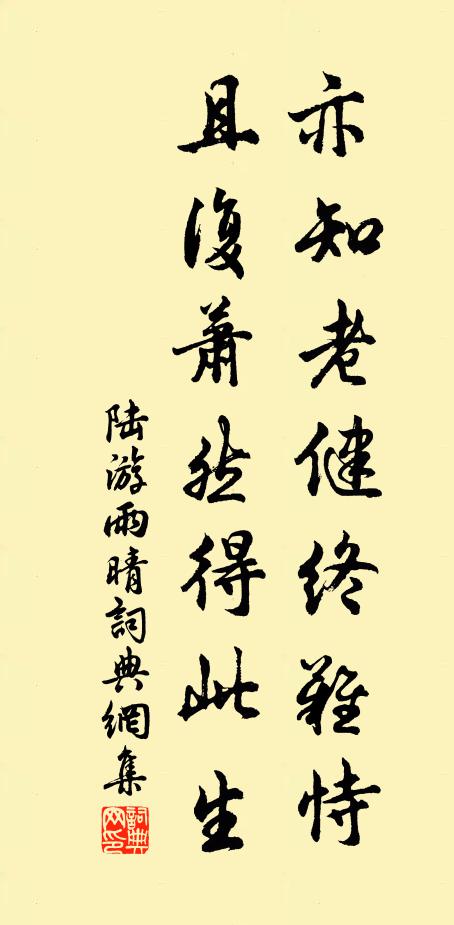 亦知老健终難恃
且復蕭然得此生
陆游雨晴詞典網集
詞典網印